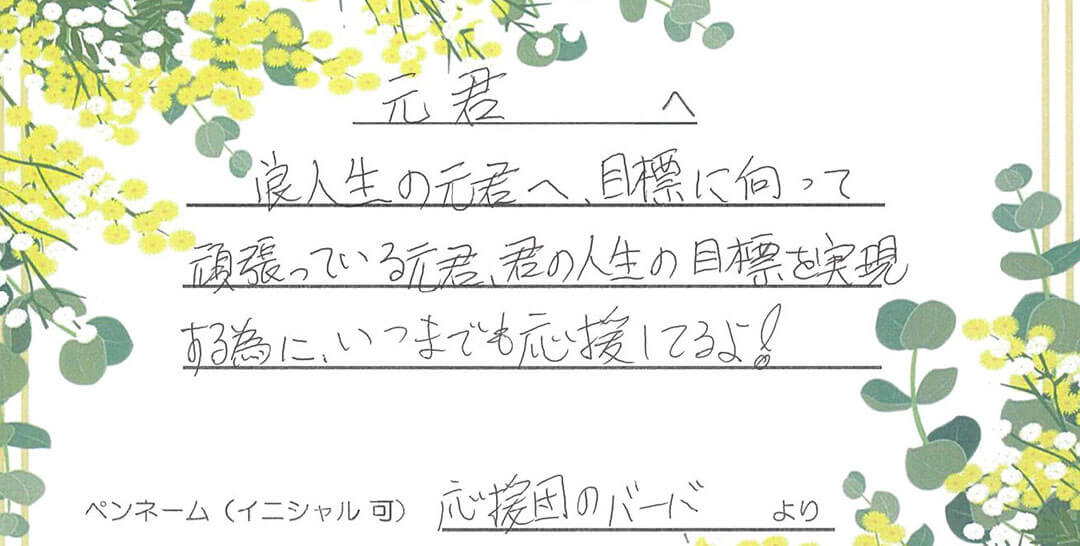 元君 へ
浪人生の元君へ、目標に向って
頑張っている元君、君の人生の目標を実現
する為に、いつまでも応援してるよ!
ペンネーム（イニシャル可） 応援団のバーバ より